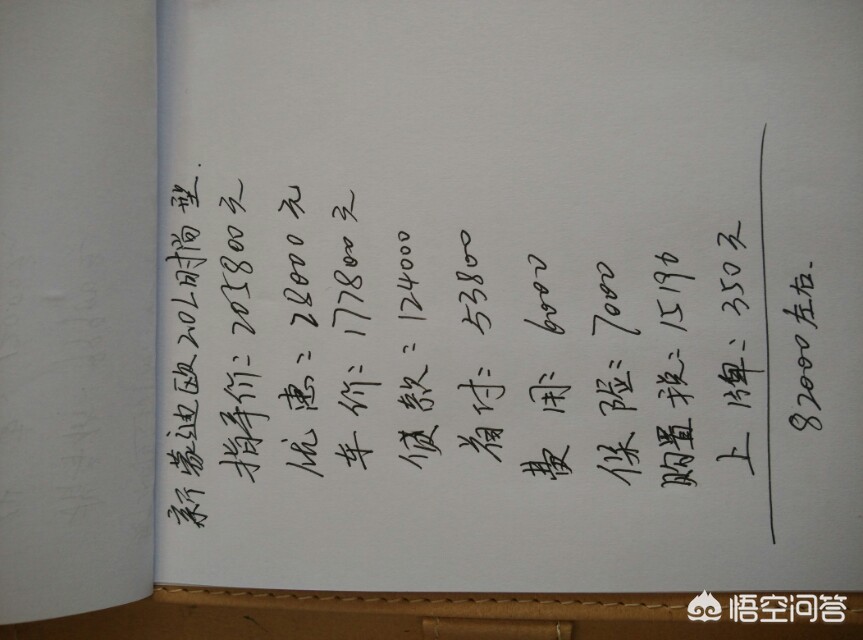 新蒙迪欧20L时尚型.
指导价:205800元
优惠:28000元
车价:177800元
贷款:124000
首付:53800
费用:6000
保险:7000
购置税:15196
上牌:350元
82000左右.
悟空问答